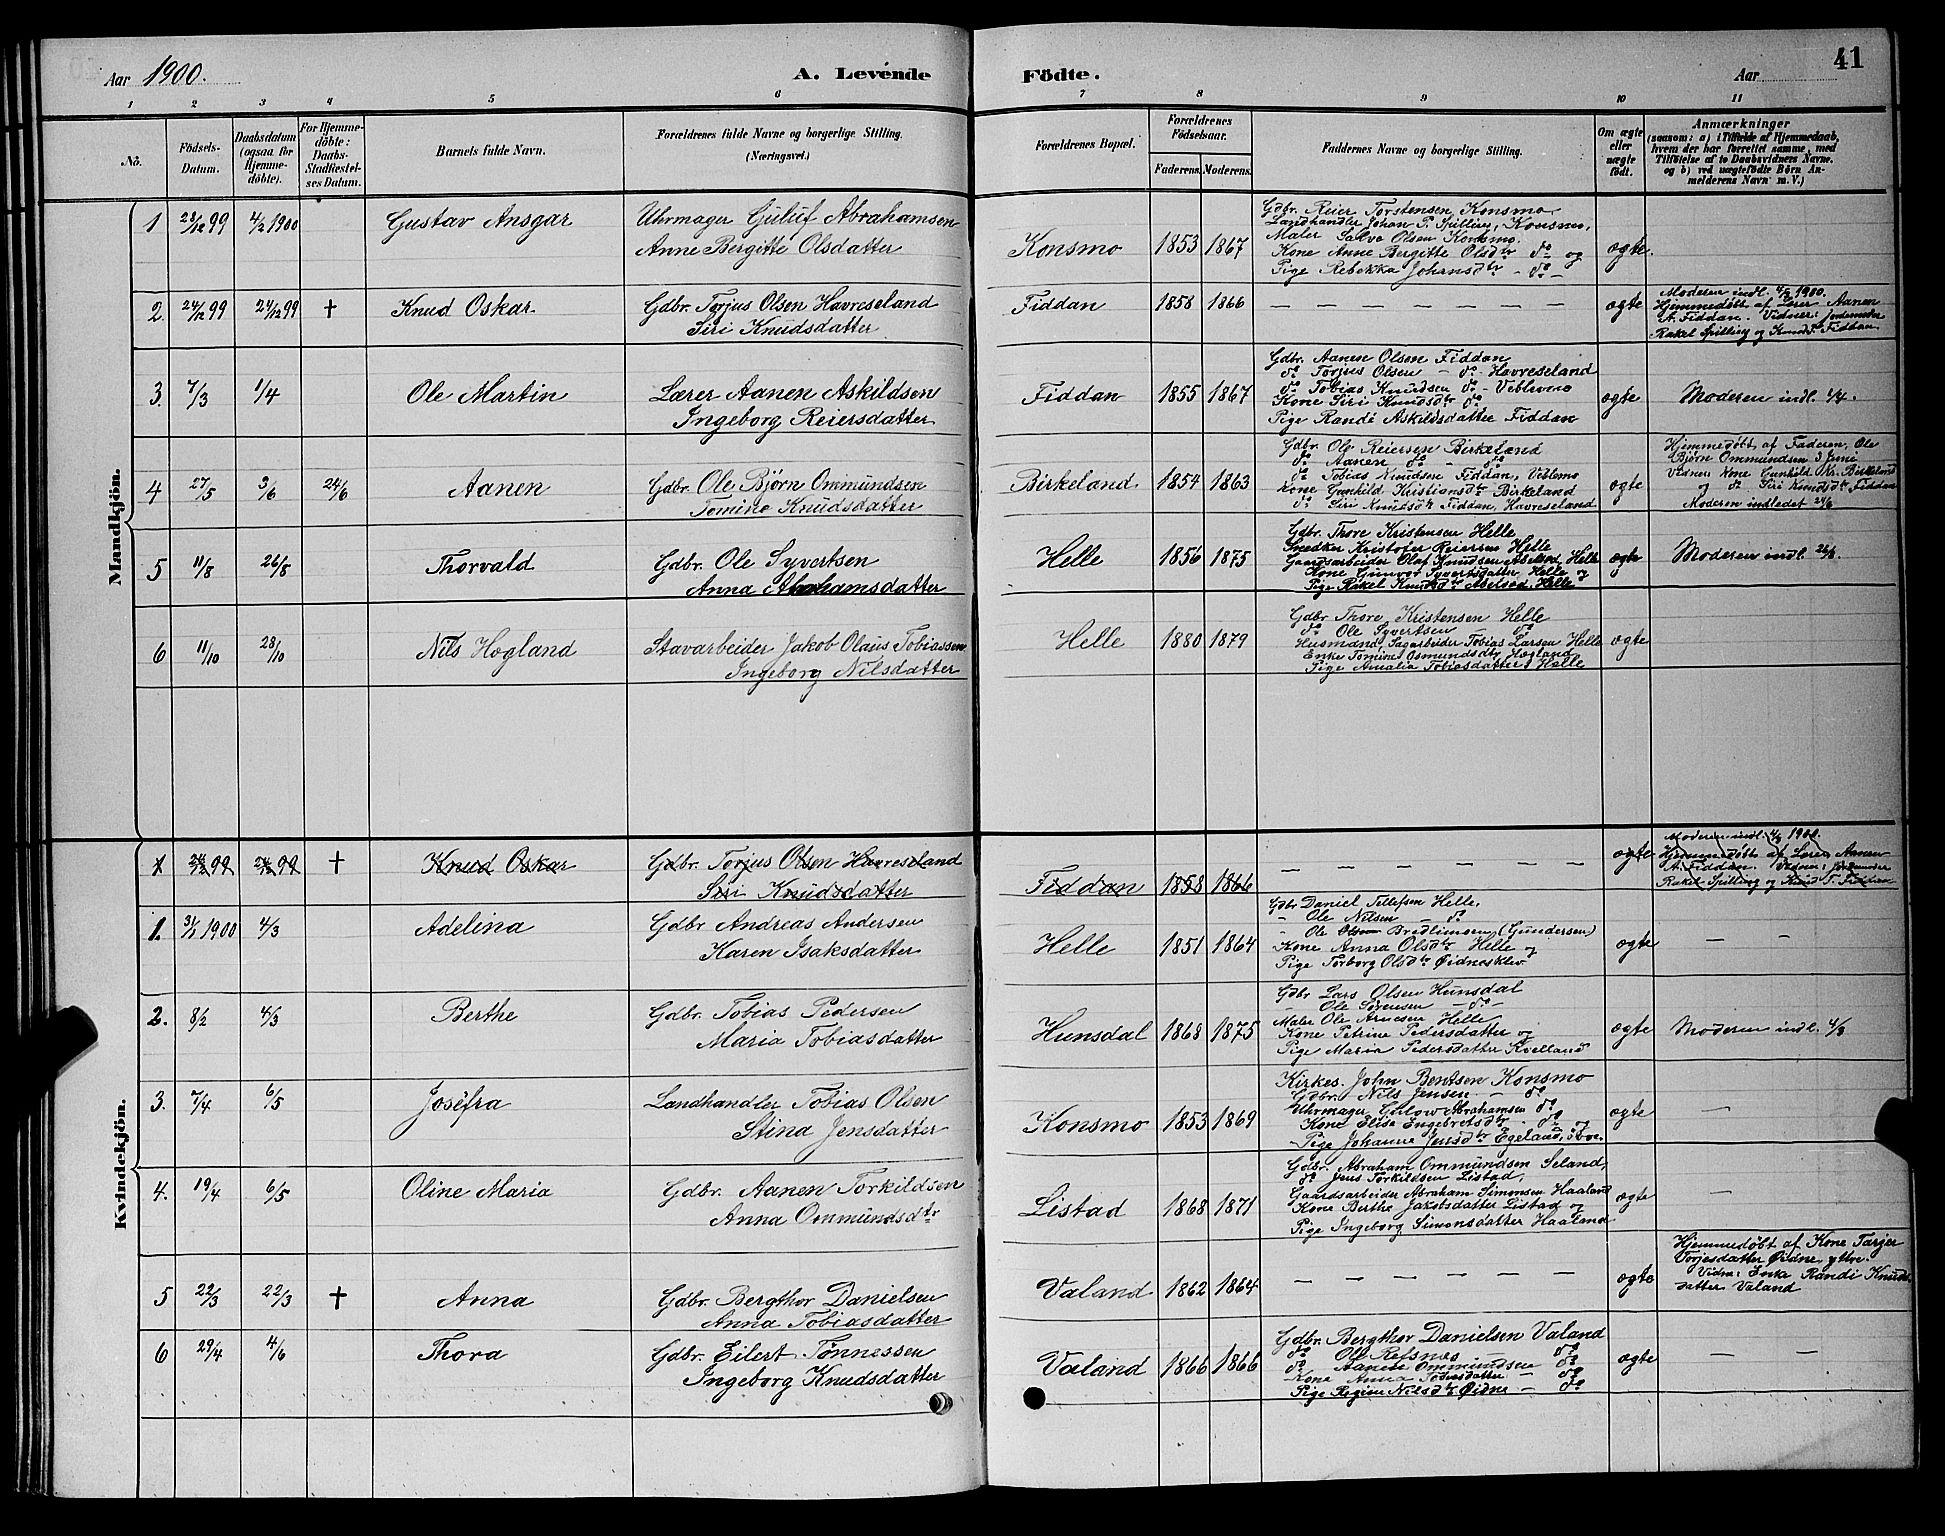 Aar 1900.
A. Levende Födte.
Aar
41
1 2 3 4 5 6 7 8 9 10 11
No.
Födsels-Datum.
Daabsdatum (ogsaa for Hjemme-döbte).
For Hjemme-döbte: Daabs-Stadfæstel-ses Datum.
Barnets fulde Navn.
Forældrenes fulde Navne og borgerlige Stilling.
(Næringsvei.)
Forældrenes Bopæl.
Forældrenes Födselsaar.
Faderens. Moderens.
Faddernes Navne og borgerlige Stilling.
Om ægte eller uægte födt.
Anmærkninger
(saasom: a) i Tilfælde af Hjemmedaab, hvem der har forrettet samme, med Tilföielse af to Daabsvidners Navne, og b) ved uægtefödte Börn An-melderens Navn m. V.)
Mandkjön.
1 28/12 99 4/2 1900 Gustav Ansgar
Uhrmager Guluf Abrahamsen
Anne Bergitte Olsdatter
Konsmo 1853 1867
Gdbr. Reier Torstensen Konsmo
Landhandler Johan P. Spilling, Konsmo,
Maler Salve Olsen Konsmo.
Kone Anne Bergitte Olsdtr do og
Pige Rebekka Johnsdtr - do -
ægte.
2 24/12 99 24/12 99 † Knud Oskar
Gdbr. Torjus Olsen Havreseland
Siri Knudsdatter
Fiddan 1858 1866
— — — — — — —
ægte
Moderen indl. 4/2 1900.
Hjemmedøbt af Lærer Aanen
A. Fiddan. Vidner: Jordemoder
Rakel Spilling og Knud T. Fiddan
3. 7/3 1/4 Ole Martin
Lærer Aanen Askildsen
Ingeborg Reiersdatter
Fiddan 1855 1867
Gdbr. Aanen Olsen Fiddan
do Torjus Olsen - do - Havreseland
do Tobias Knudsen do - Veblemo
Kone Siri Knudsdtr do
Pige Randi Askildsdatter Fiddan
ægte
Moderen indl. 1/4.
4 27/5 3/6 24/6 Aanen
Gdbr. Ole Bjørn Ommundsen
Tomine Knudsdatter
Birkeland. 1854 1863
Gdbr. Ole Reiersen Birkeland
do Aanen do - do
do Tobias Knudsen Fiddan, Veblemo
Kone Gunhild Kristiansdtr Birkeland
do Siri Knudsdtr Fiddan, Havreseland
ægte
Hjemmedøbt af Faderen, Ole
Bjørn Ommundsen 3 Juni
Vidner Kone Gunhild Kr. Birkeland
og do Siri Knudsdtr Fiddan
Moderen indledet 24/6
5 11/8 26/8 Thorvald
Gdbr. Ole Syvertsen
Anna Abrahamsdatter
Helle 1856 1875
Gdbr. Thore Kristensen Helle
Snedker Kristofer Reiersen Helle
Gaardsarbeider Olaf Knudsen Helle
Kone Gunvor Syvertsdatter Helle og
Pige Rakel Knudsdtr Helle
ægte
Moderen indl. 26/8.
6 11/10 28/10 Nils Høgland
Stavarbeider Jakob Olaus Tobiassen
Ingeborg Nilsdatter
Helle 1880 1879
Gdbr Thore Kristensen Helle
do Ole Syvertsen do
Husmand, Sagarbeider Tobias Larsen Helle
Enke Tomine Osmundsdtr Høgland
Pige Amalia Tobiasdatter, Helle
ægte
Kvindekjön.
1 24/12 99 24/12 99 † Knud Oskar
Gdbr. Torjus Olsen Havreseland
Siri Knudsdatter
Fiddan 1858 1866
— — — — — —
ægte
Moderen indl. 4/2 1900.
Hjemmedøbt af Lærer Aanen
A. Fiddan. Vidner: Jordemoder
Rakel Spilling og Knud T. Fiddan
1. 31/1 1900 4/3 Adelina
Gdbr Andreas Andersen
Karen Isaksdatter
Helle 1851 1864
Gdbr Daniel Tellefsen Helle,
- Ole Nilsen - do
- Ole Olsen Bredlimoen (Gundersen)
Kone Anna Olsdtr Helle og
Pige Torborg Olsdtr Øidnesklev
ægte — —
2. 8/2 4/3 Berthe
Gdbr. Tobias Pedersen
Maria Tobiasdatter
Hunsdal 1868 1875
Gdbr Lars Olsen Hunsdal
- Ole Sørensen - do -
Maler Ole Arnesen Helle
Kone Petrine Pedersdatter og
Pige Maria Pedersdatter Kvelland
ægte
Moderen indl. 4/3
3. 7/4 6/5 Joséfra
Landhandler Tobias Olsen
Stina Jensdatter
Konsmo 1853 1869
Kirkes. John Bentsen Konsmo
Gdbr. Nils Jensen - do
Uhrmager Gulow Abrahamsen do
Kone Elise Engebretsdtr - do og
Pige Johanne Jensdtr Egeland,
ægte —
4. 19/4 6/5 Oline Maria
Gdbr. Aanen Torkildsen
Anna Ommundsdtr
Listad 1868 1871
Gdbr. Abraham Ommundsen Seland,
do Jens Torkildsen Listad,
Gaardsarbeider Abraham Simonsen Haaland
Kone Berthe Jakobsdatter Listad og
Pige Ingeborg Simonsdatter Haaland
ægte —
5 22/3 22/3 † Anna
Gdbr. Bergthor Danielsen
Anna Tobiasdatter
Valand 1862 1864
— — — — — —
ægte
Hjemmedøbt af Kone Tarjer
Torjesdatter Øidne, yttre
Vidne: Enke Randi Knuds-
datter Valand
6 29/4 4/6 Thora
Gdbr. Eilert Tønnessen
Ingeborg Knudsdatter
Valand 1866 1866
Gdbr. Bergthor Danielsen Valand
do Ole Refsnes — do
do Aanen Ommundsen do
Kone Anna Tobiasdatter - do
Pige Regine Nilsdtr Øidne - do
ægte — —